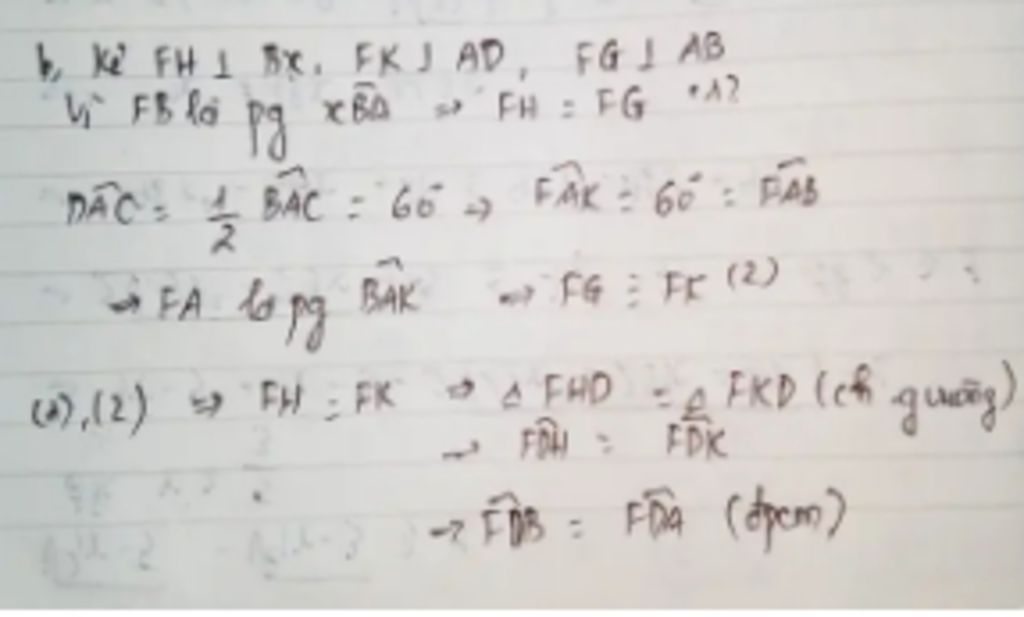 b, Kẻ FH ⊥ Bx, FK ⊥ AD, FG ⊥ AB
Vì FB là pg xBA^ → FH = FG (1)
DAC^ = 1/2 BAC^ = 60° → FAK^ = 60° = FAB^
→ FA là pg BAK^ → FG = FK (2)
(1),(2) → FH = FK → Δ FHD = Δ FKD (ch guông)
→ FDH^ = FDK^
→ FDB^ = FDA^ (đpcm)